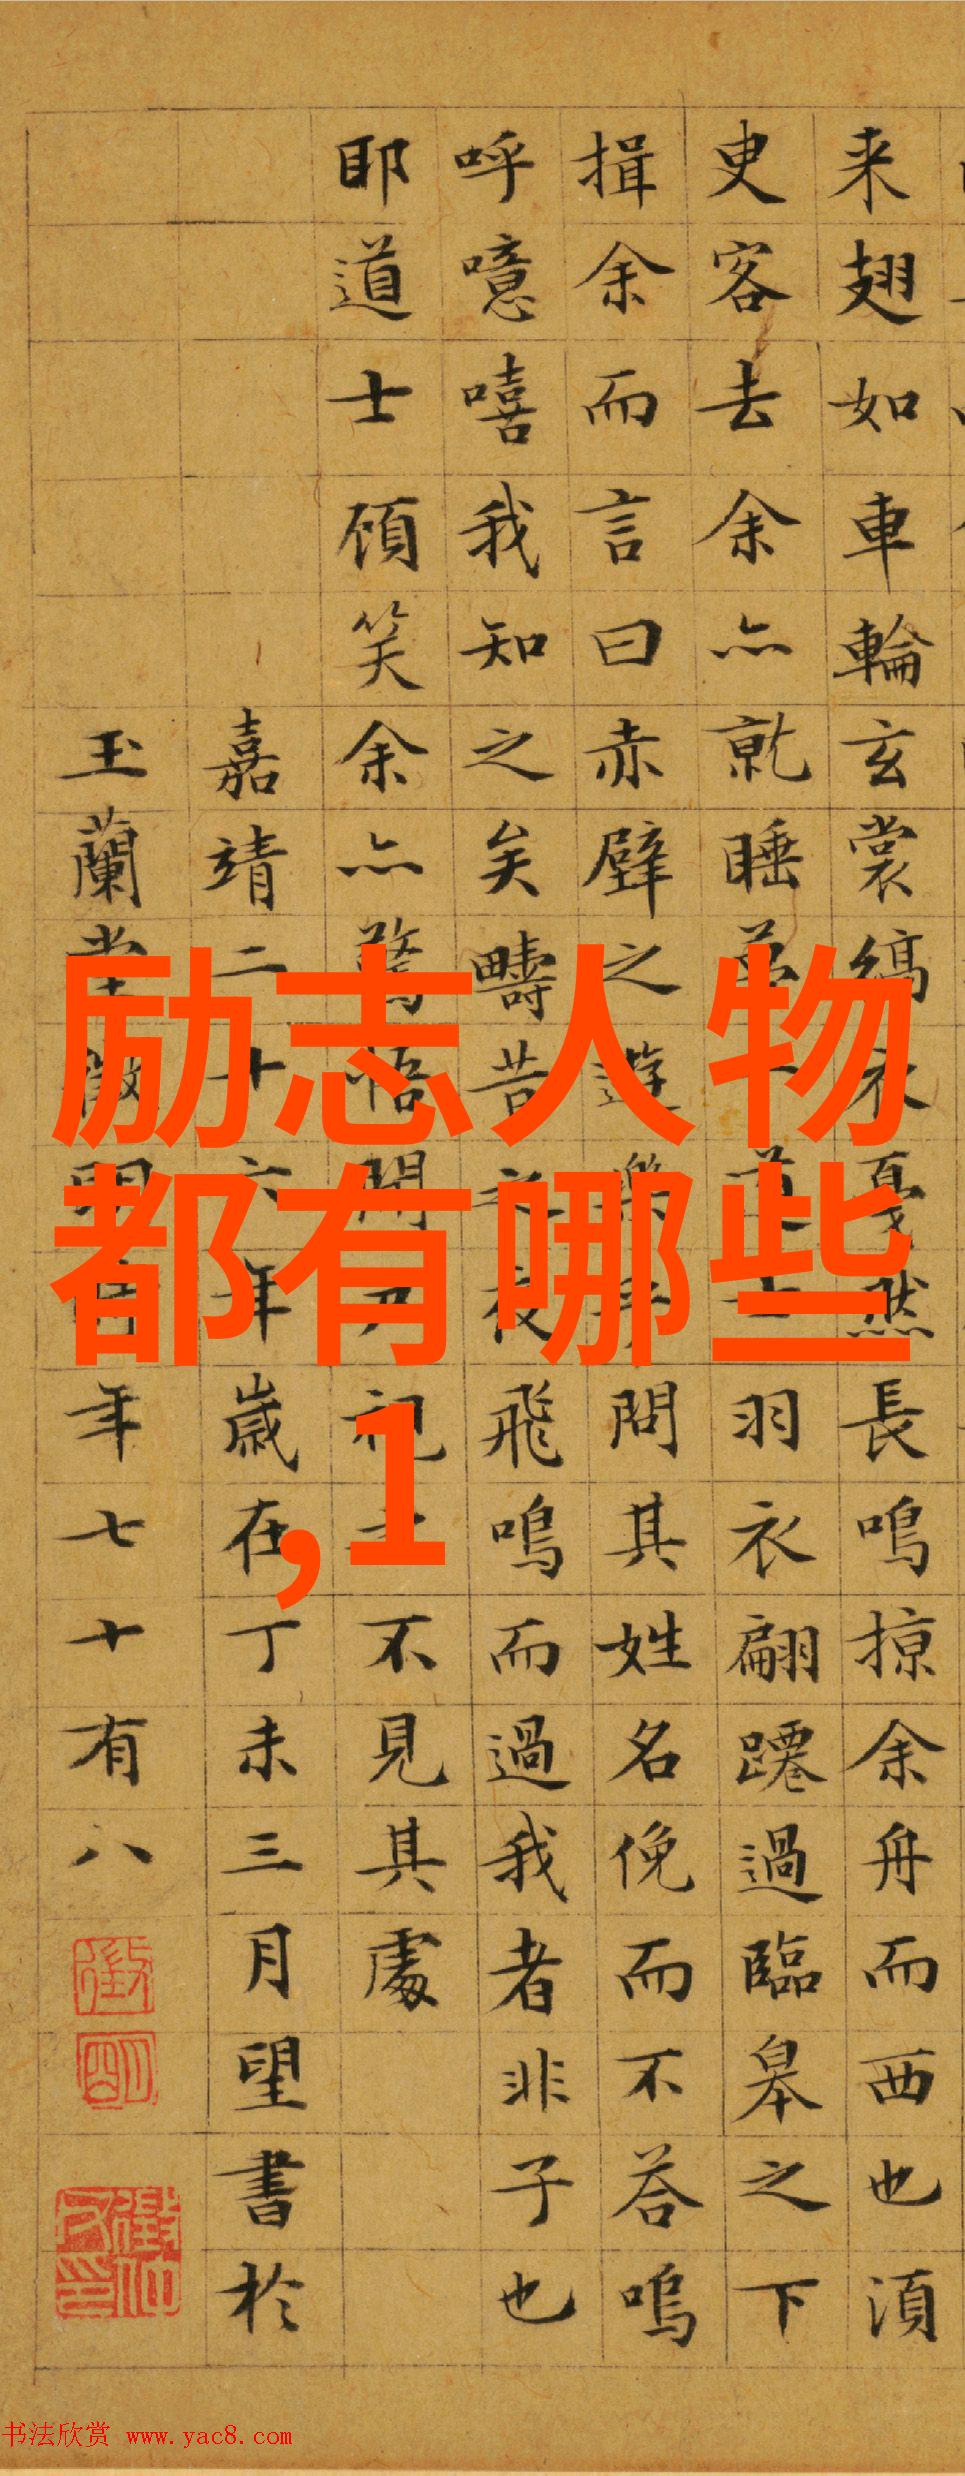 励志人物
都有哪些
,1
来翅如車輪玄裳縞衣戛然長鳴掠余舟而西也湏
叟客去余亦就睡道士羽衣翩躚過臨皋之下
揖余而言曰赤壁之遊樂乎問其姓名俛而不荅嗚
呼噫嘻我知之矣疇昔之夜飛鳴而過我者非子也
耶道士顧笑余亦驚悟開戸視之不見其處
嘉靖二十六年歲在丁未三月望書於
玉蘭堂徵明時年七十有八
书法欣赏 www.yac8.com